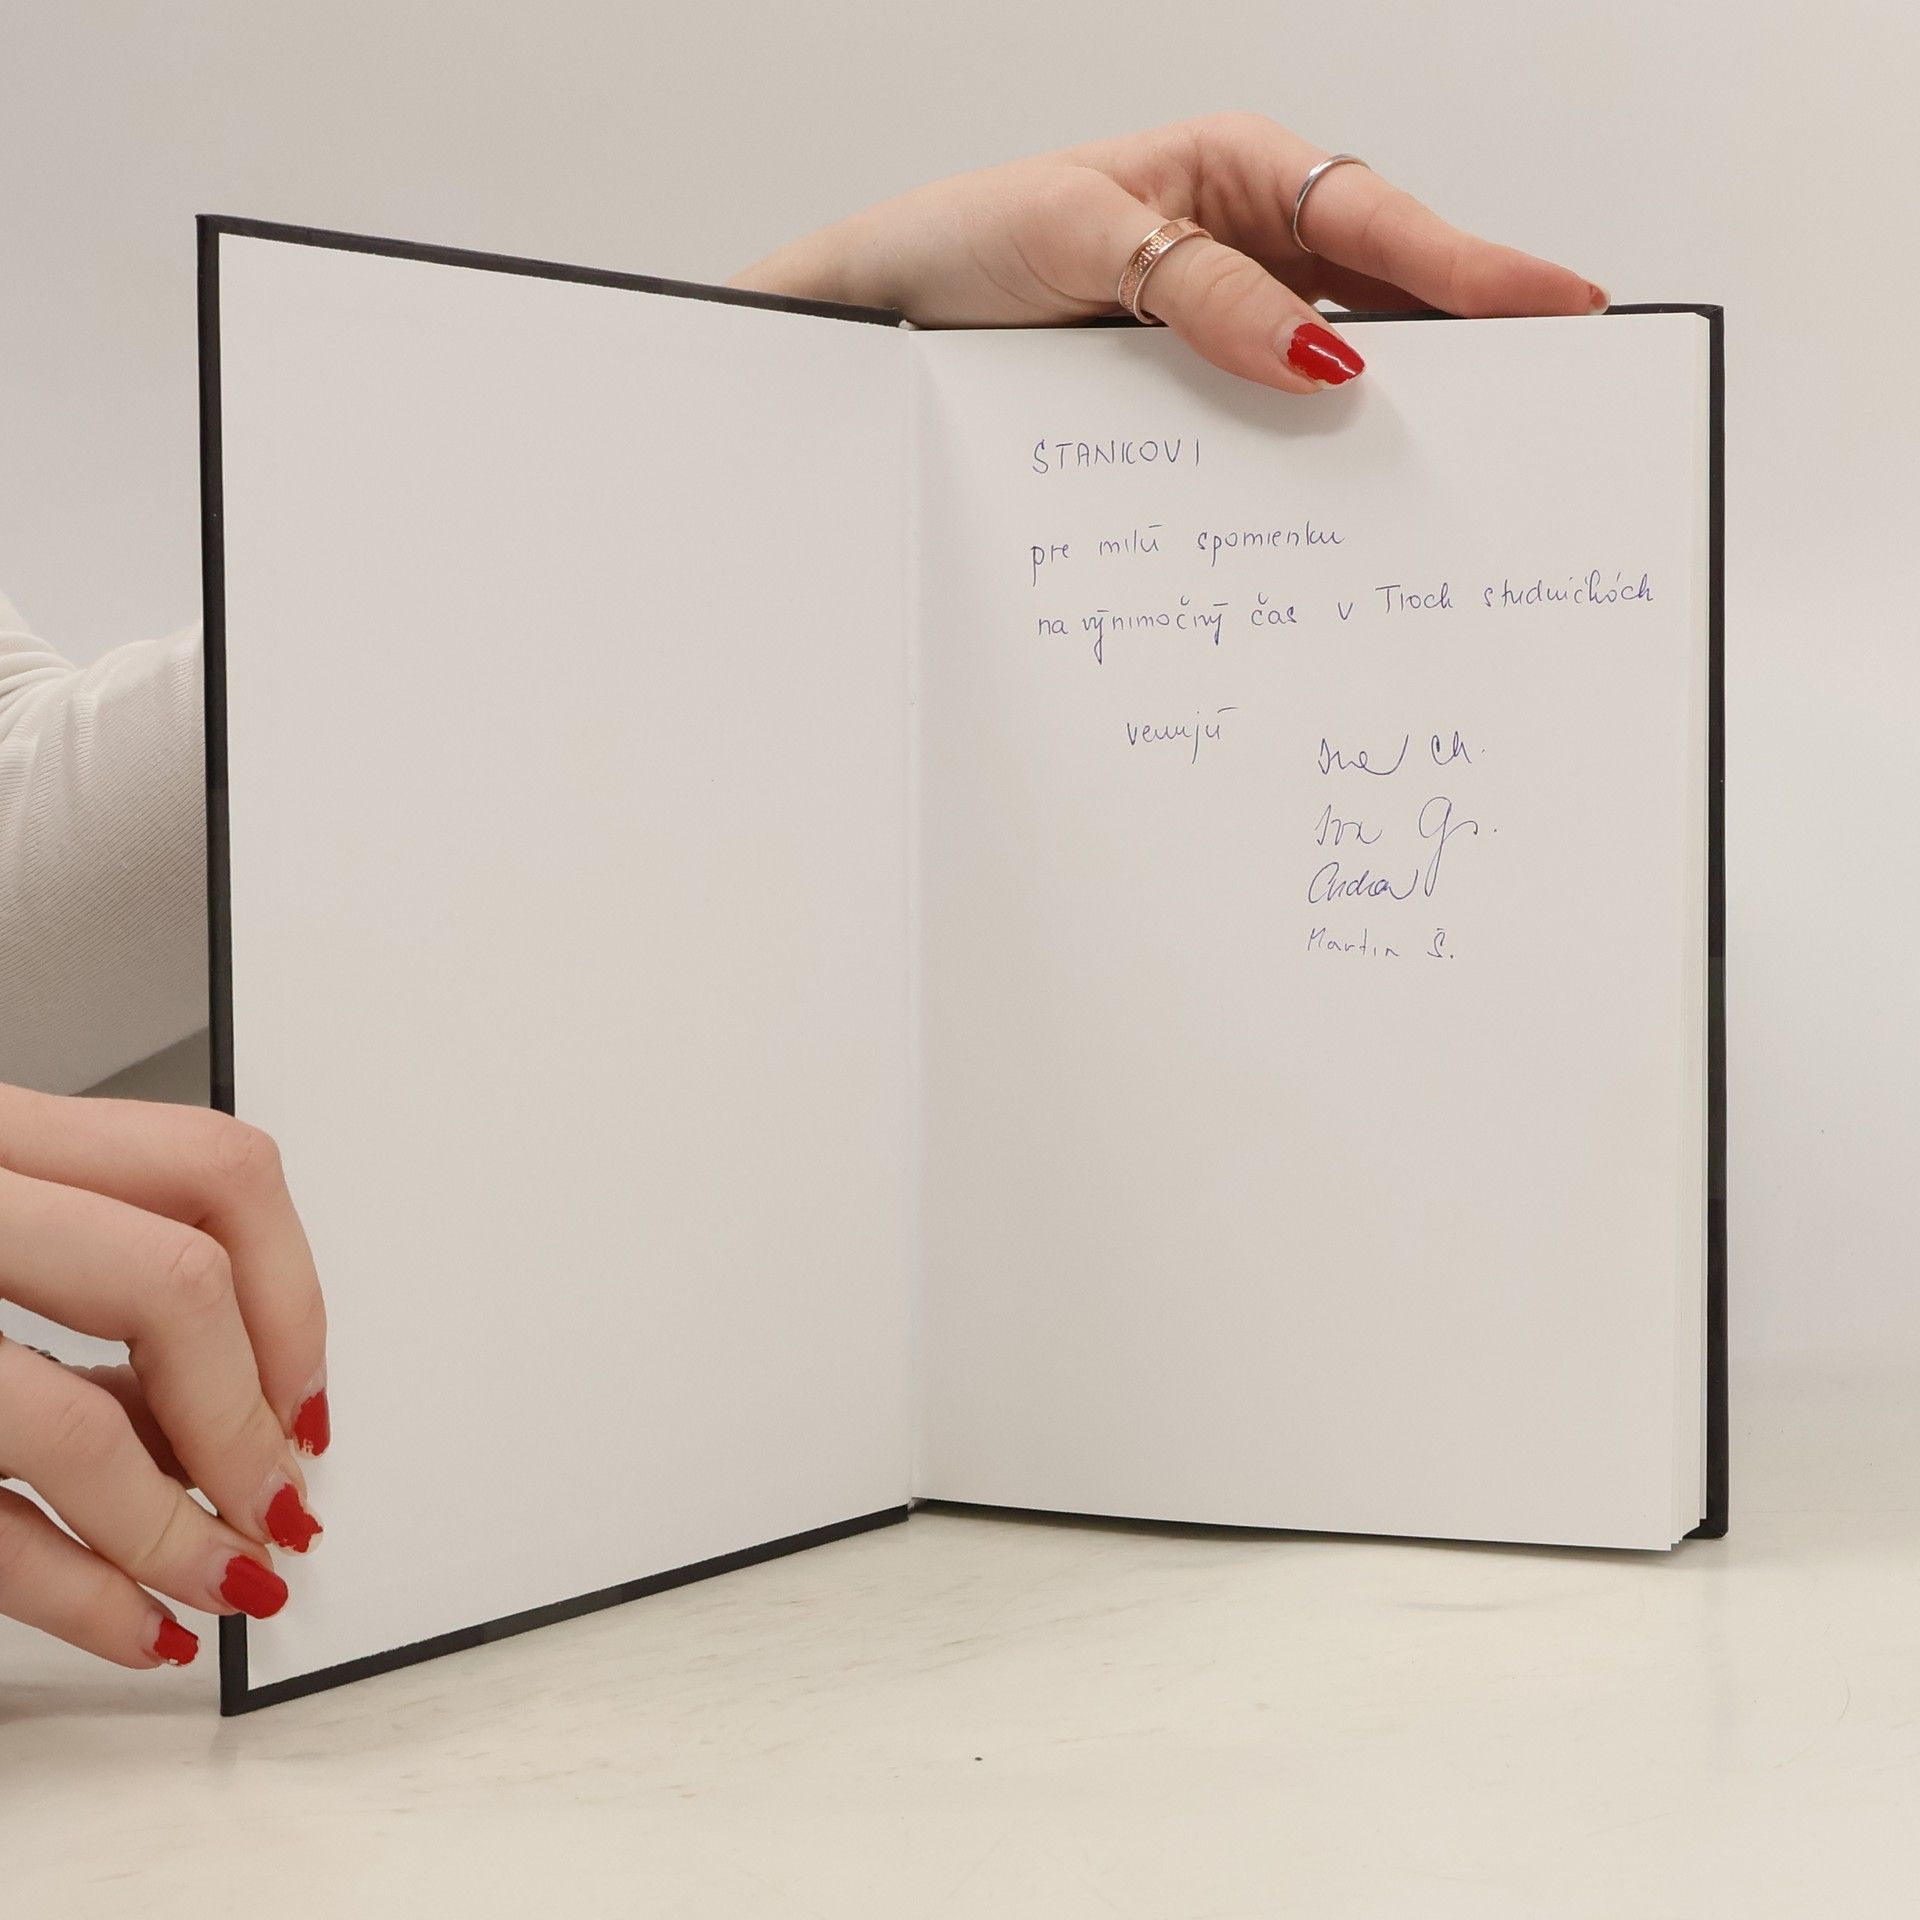 STANKOVI
pre milú spomienku
na výnimočný čas v Troch studničkách
venujú
Iva Ch.
Iva Gs.
Andrea
Martin Š.